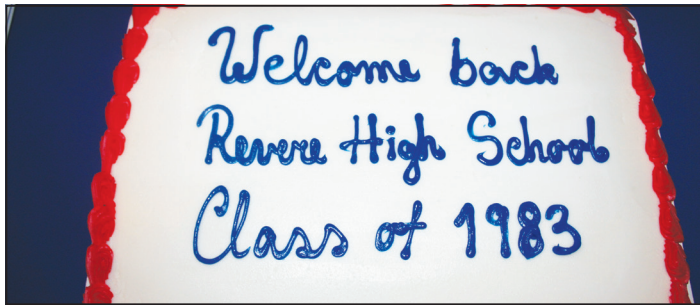 Welcome back
Revere High School
Class of 1983